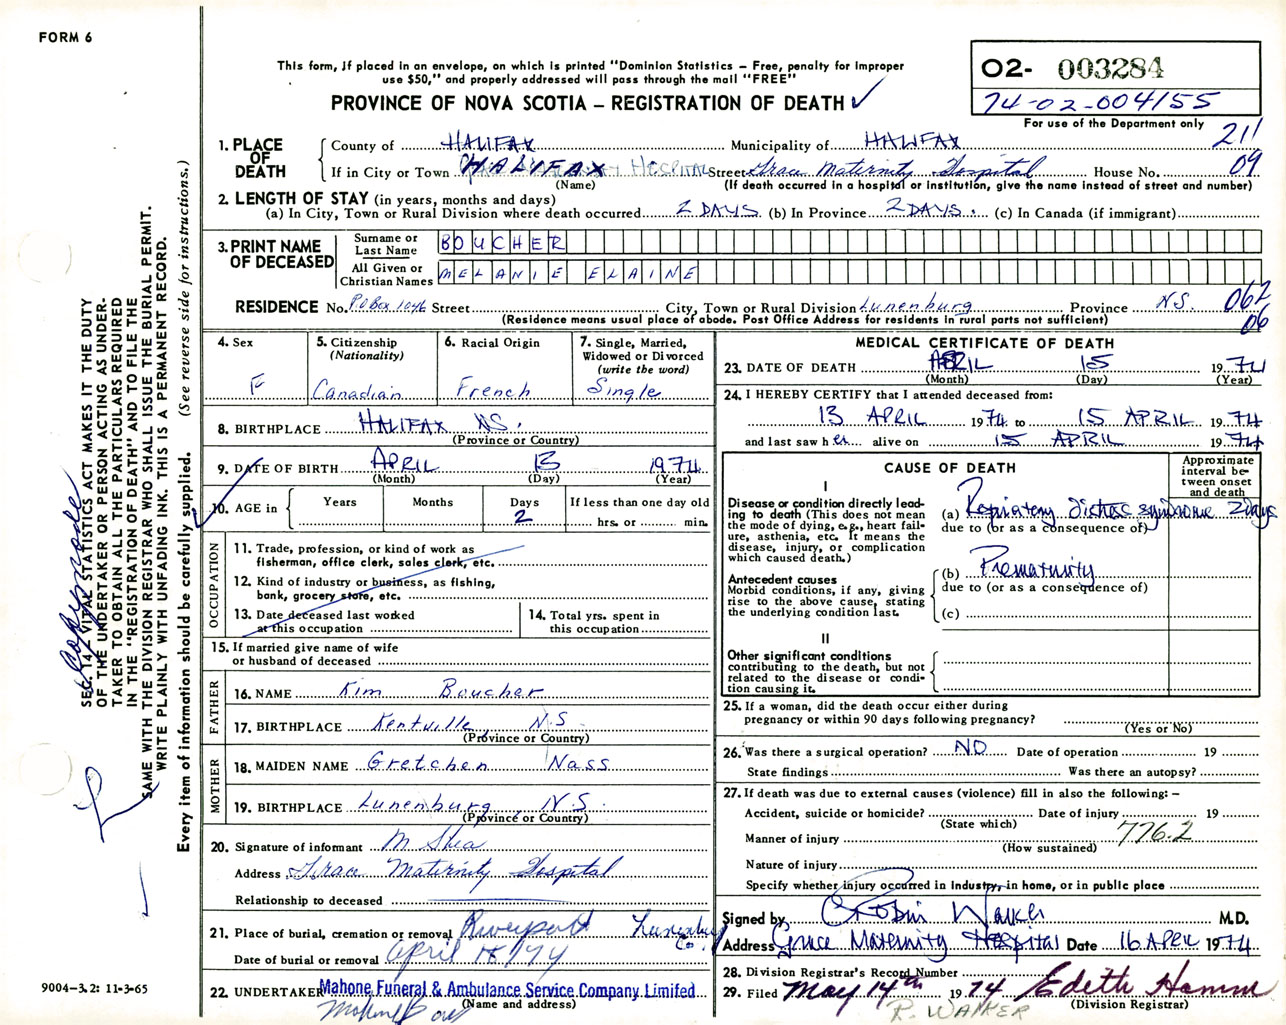 FORM 6
This form, if placed in an envelope, on which is printed "Dominion Statistics – Free, penalty for improper
use $50," and properly addressed will pass through the mail "FREE"
PROVINCE OF NOVA SCOTIA – REGISTRATION OF DEATH
O2- 003284
74-02-004155
For use of the Department only
211
09
1. PLACE OF DEATH
County of HALIFAX Municipality of HALIFAX
If in City or Town HALIFAX Street Grace Maternity Hospital House No.
(Name) (If death occurred in a hospital or institution, give the name instead of street and number)
2. LENGTH OF STAY (in years, months and days)
(a) In City, Town or Rural Division where death occurred 2 DAYS (b) In Province 2 DAYS. (c) In Canada (if immigrant)
3. PRINT NAME OF DECEASED
Surname or Last Name BOUCHER
All Given or Christian Names MELANIE ELAINE
RESIDENCE No. P.O Box 1046 Street City, Town or Rural Division Lunenburg Province N.S.
(Residence means usual place of abode. Post Office Address for residents in rural parts not sufficient)
062
06
4. Sex F
5. Citizenship (Nationality) Canadian
6. Racial Origin French
7. Single, Married, Widowed or Divorced (write the word) Single
8. BIRTHPLACE HALIFAX NS.
(Province or Country)
9. DATE OF BIRTH APRIL 13 1974
(Month) (Day) (Year)
10. AGE in Years Months Days 2 If less than one day old hrs. or min.
OCCUPATION
11. Trade, profession, or kind of work as
fisherman, office clerk, sales clerk, etc.
12. Kind of industry or business, as fishing,
bank, grocery store, etc.
13. Date deceased last worked
at this occupation
14. Total yrs. spent in
this occupation
15. If married give name of wife
or husband of deceased
FATHER
16. NAME Kim Boucher
17. BIRTHPLACE Kentville N.S.
(Province or Country)
MOTHER
18. MAIDEN NAME Gretchen Nass
19. BIRTHPLACE Lunenburg N.S.
(Province or Country)
20. Signature of informant M Shea
Address Grace Maternity Hospital
Relationship to deceased
21. Place of burial, cremation or removal Riverport Lunenburg Co.
Date of burial or removal April 18/74
22. UNDERTAKER Mahone Funeral & Ambulance Service Company Limited
(Name and address)
MEDICAL CERTIFICATE OF DEATH
23. DATE OF DEATH APRIL 15 1974
(Month) (Day) (Year)
24. I HEREBY CERTIFY that I attended deceased from:
13 APRIL 1974 to 15 APRIL 1974
and last saw her alive on 15 APRIL 1974
CAUSE OF DEATH
Approximate interval between onset and death
I
Disease or condition directly leading to death (This does not mean the mode of dying, e.g., heart failure, asthenia, etc. It means the disease, injury, or complication which caused death.)
(a) Respiratory distress syndrome 2 days
due to (or as a consequence of)
Antecedent causes
Morbid conditions, if any, giving rise to the above cause, stating the underlying condition last.
(b) Prematurity
due to (or as a consequence of)
(c)
II
Other significant conditions
contributing to the death, but not related to the disease or condition causing it.
25. If a woman, did the death occur either during
pregnancy or within 90 days following pregnancy?
(Yes or No)
26. Was there a surgical operation? NO Date of operation 19
State findings Was there an autopsy?
27. If death was due to external causes (violence) fill in also the following: –
Accident, suicide or homicide? Date of injury 19
(State which)
Manner of injury 776.2
(How sustained)
Nature of injury
Specify whether injury occurred in industry, in home, or in public place
Signed by Robin Walker M.D.
Address Grace Maternity Hospital Date 16 APRIL 1974
28. Division Registrar's Record Number
29. Filed May 14th 1974 Edith Hamm
(Division Registrar)
R. WALKER
SEC. 14, VITAL STATISTICS ACT MAKES IT THE DUTY
OF THE UNDERTAKER OR PERSON ACTING AS UNDER-
TAKER TO OBTAIN ALL THE PARTICULARS REQUIRED
IN THE "REGISTRATION OF DEATH" AND TO FILE THE
SAME WITH THE DIVISION REGISTRAR WHO SHALL ISSUE THE BURIAL PERMIT.
WRITE PLAINLY WITH UNFADING INK. THIS IS A PERMANENT RECORD.
Every item of information should be carefully supplied. (See reverse side for instructions.)
9004-3.2: 11-3-65